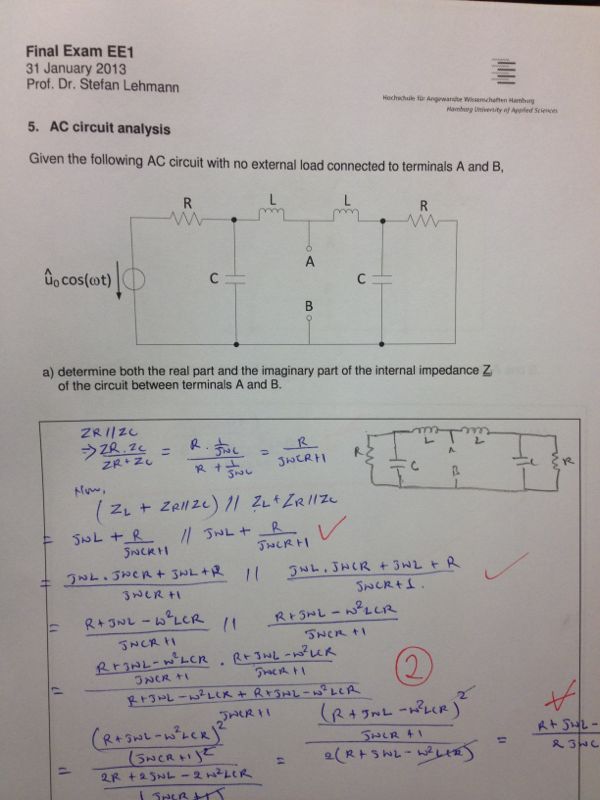 Final Exam EE1
31 January 2013
Prof. Dr. Stefan Lehmann
Hochschule für Angewandte Wissenschaften Hamburg
Hamburg University of Applied Sciences
5. AC circuit analysis
Given the following AC circuit with no external load connected to terminals A and B,
R L L R
û₀ cos(ωt) C A C
B
a) determine both the real part and the imaginary part of the internal impedance Zᵢ
of the circuit between terminals A and B.
ZR//ZC
⇒ ZR.ZC / ZR+ZC = R.1/jwc / R+1/jwc = R / jwCR+1
R L A L B C C R
Now,
(ZL + ZR//ZC) // ZL+ZR//ZC
= jwL + R / jwCR+1 // jwL + R / jwCR+1
= jwL.jwCR+jwL+R / jwCR+1 // jwL.jwCR+jwL+R / jwCR+1.
= R+jwL-w²LCR / jwCR+1 // R+jwL-w²LCR / jwCR+1
= R+jwL-w²LCR / jwCR+1 . R+jwL-w²LCR / jwCR+1 / R+jwL-w²LCR+R+jwL-w²LCR / jwCR+1
2
= (R+jwL-w²LCR)² / (jwCR+1)² / 2R+2jwL-2w²LCR / (jwCR+1) = (R+jwL-w²LCR)² / jwCR+1 / 2(R+jwL-w²LCR) = R+jwL- / 2jwC